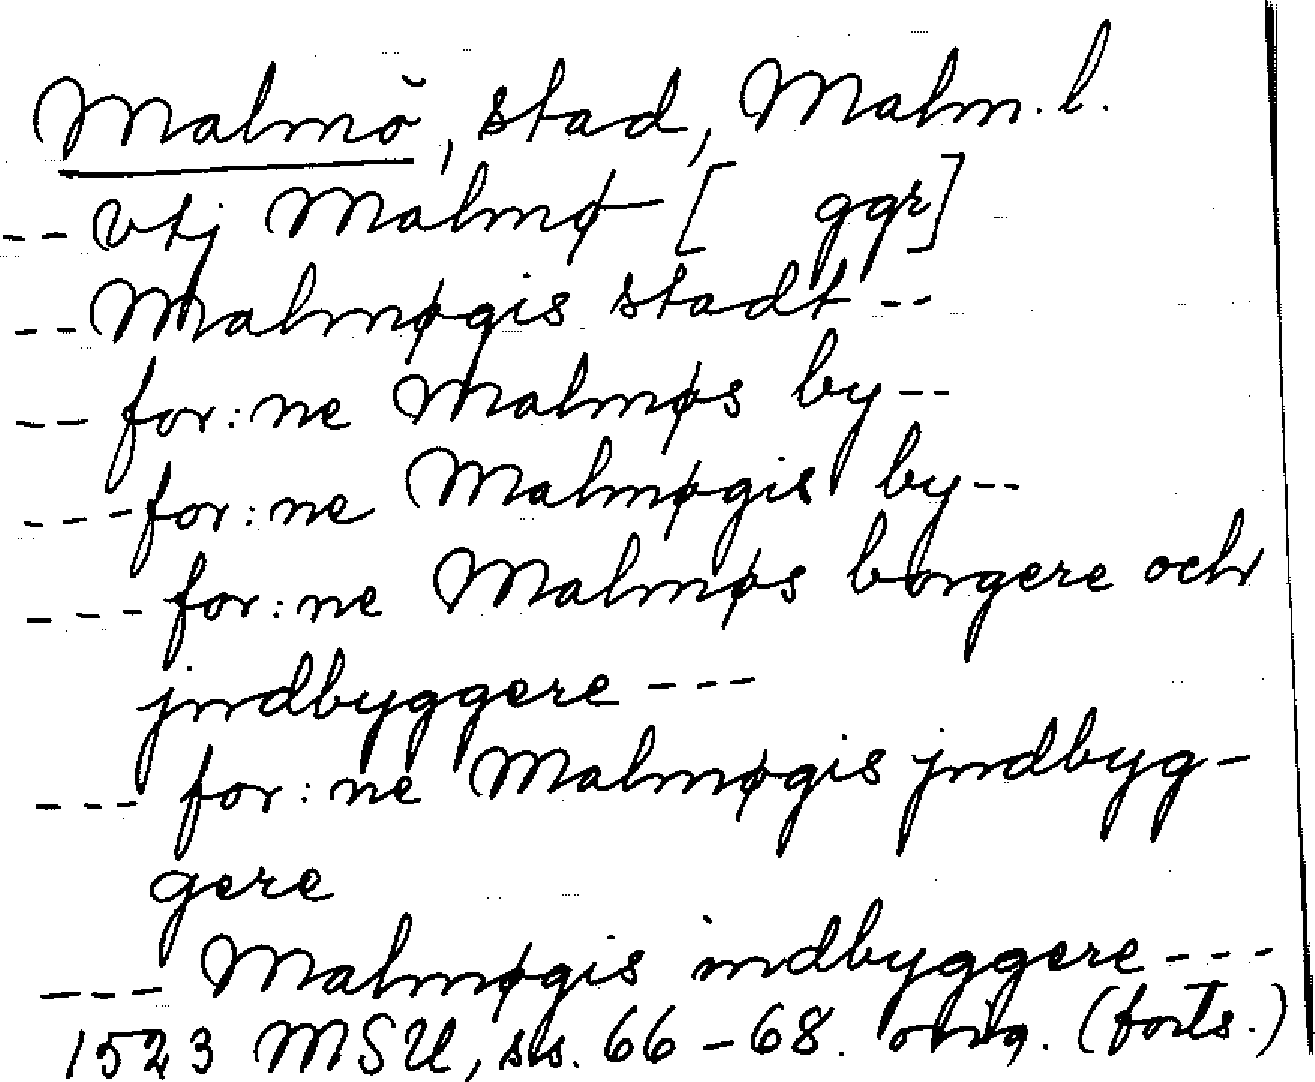 Malmö, stad, Malm. l.
-- vtj Malmø [ ggr]
-- Malmøgis stadt --
-- for:ne Malmøs by --
--- for:ne Malmøgis by --
--- for:ne Malmøs borgere och
jndbyggere ---
--- for:ne Malmøgis jndbyg-
gere
--- Malmøgis indbyggere ---
1523 MSU, ss. 66-68. orig. (forts.)